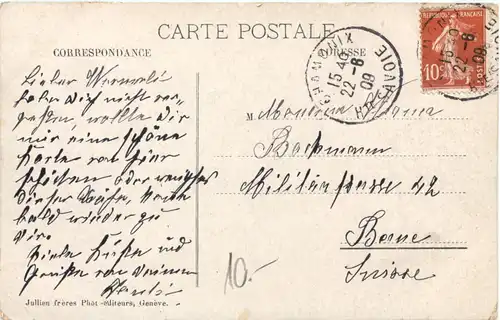 CARTE POSTALE
CORRESPONDANCE
ADRESSE
CHAMONIX
15 40
22 -8
09
HTE SAVOIE
REPUBLIQUE FRANÇAISE
10
POSTES
Lieber
habe Dich nicht ver-
gessen, wollte Dir
nur eine schöne
Karte von hier
schicken oder
dieser
bald wieder zu
Dir.
Viele Küsse und
Grüsse von Deinem
M Monsieur
Bachmann
Militärstrasse 42
Berne
Suisse
10.-
Jullien frères Phot-éditeurs, Genève.